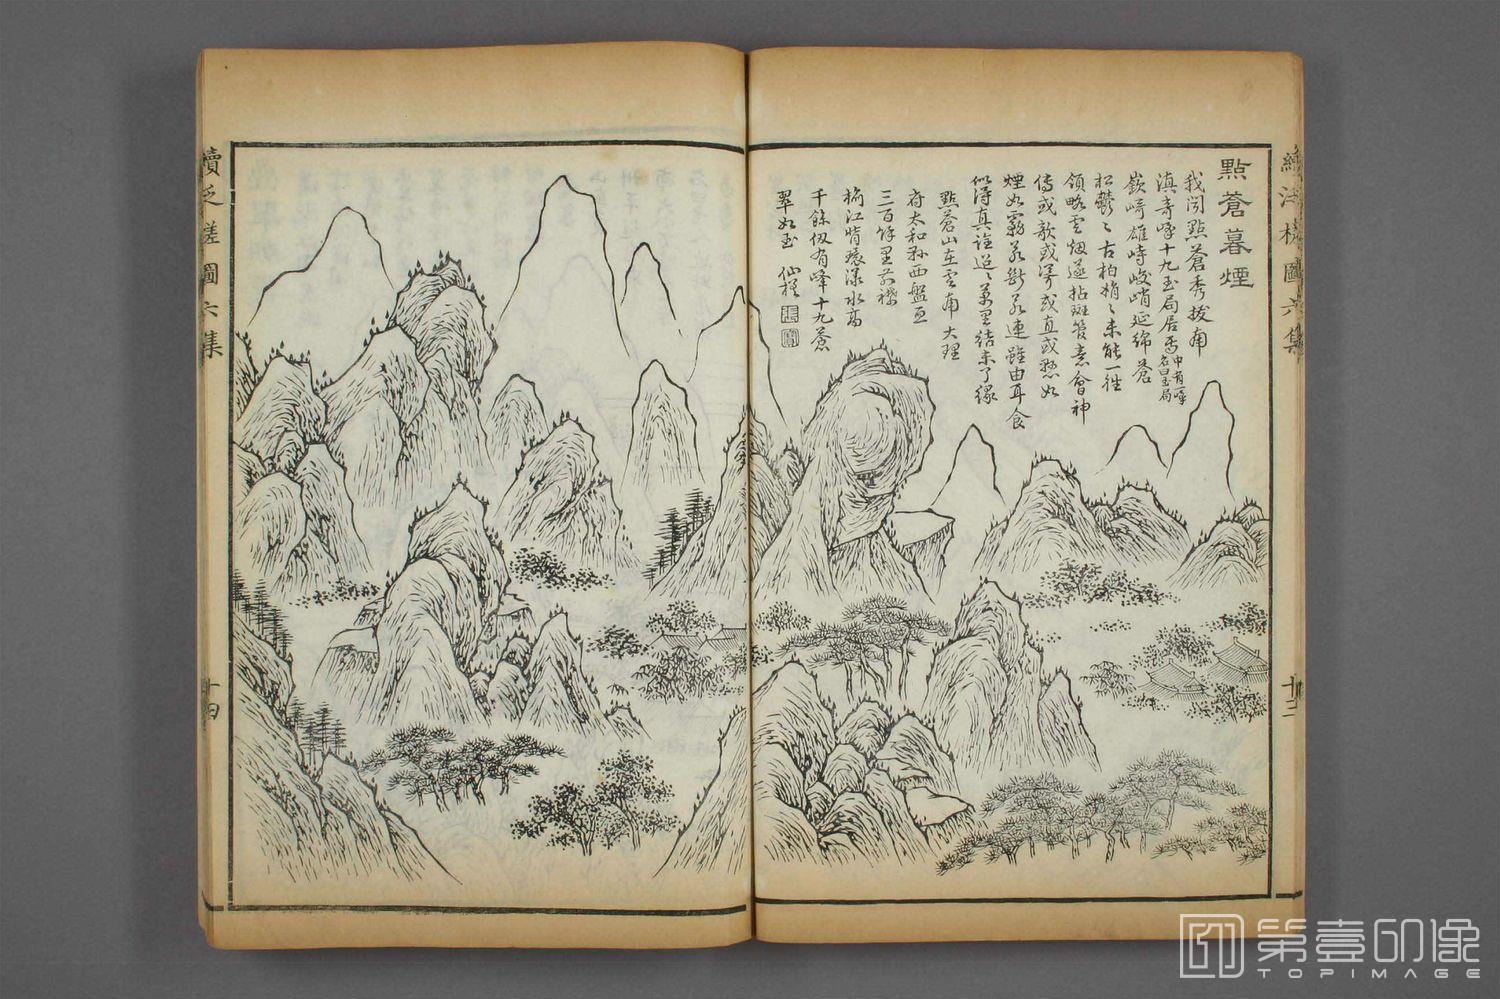 點蒼暮煙
我聞點蒼秀拔甲
滇奇峰十九玉局居中有一峰名曰玉局
嶔崎雄峙峻峭延綿蒼
松鬱鬱古柏梢梢未能一徃
領略雲烟遂拈斑管意會神
傳或欹或斜或直或愁如
煙如霧若斷若連雖由耳食
似得真詮迢迢萬里結未了緣
點蒼山在雲南大理
府太和縣西盤亘
三百餘里前襟
榆江背環漾水高
千餘仞有峰十九蒼
翠如玉 仙槎
續泛槎圖六集
十三
續泛槎圖六集
十四
第壹印像
TOPIMAGE